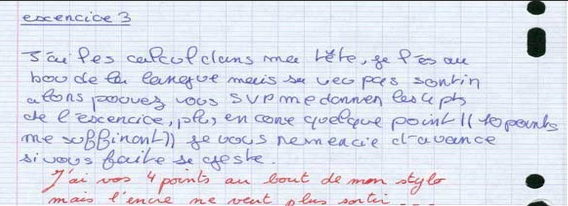 exercice 3
J'ai les calcul dans ma tête, je l'es au
bou de la langue mais sa veu pas sortir
alors pouvez vous SVP me donner les 4 pts
de l'exercice, plus encore quelque point (( 10 points
me suffiront)) je vous remercie d'avance
si vous faite se geste.
J'ai vos 4 points au bout de mon stylo
mais l'encre ne veut plus sortir...